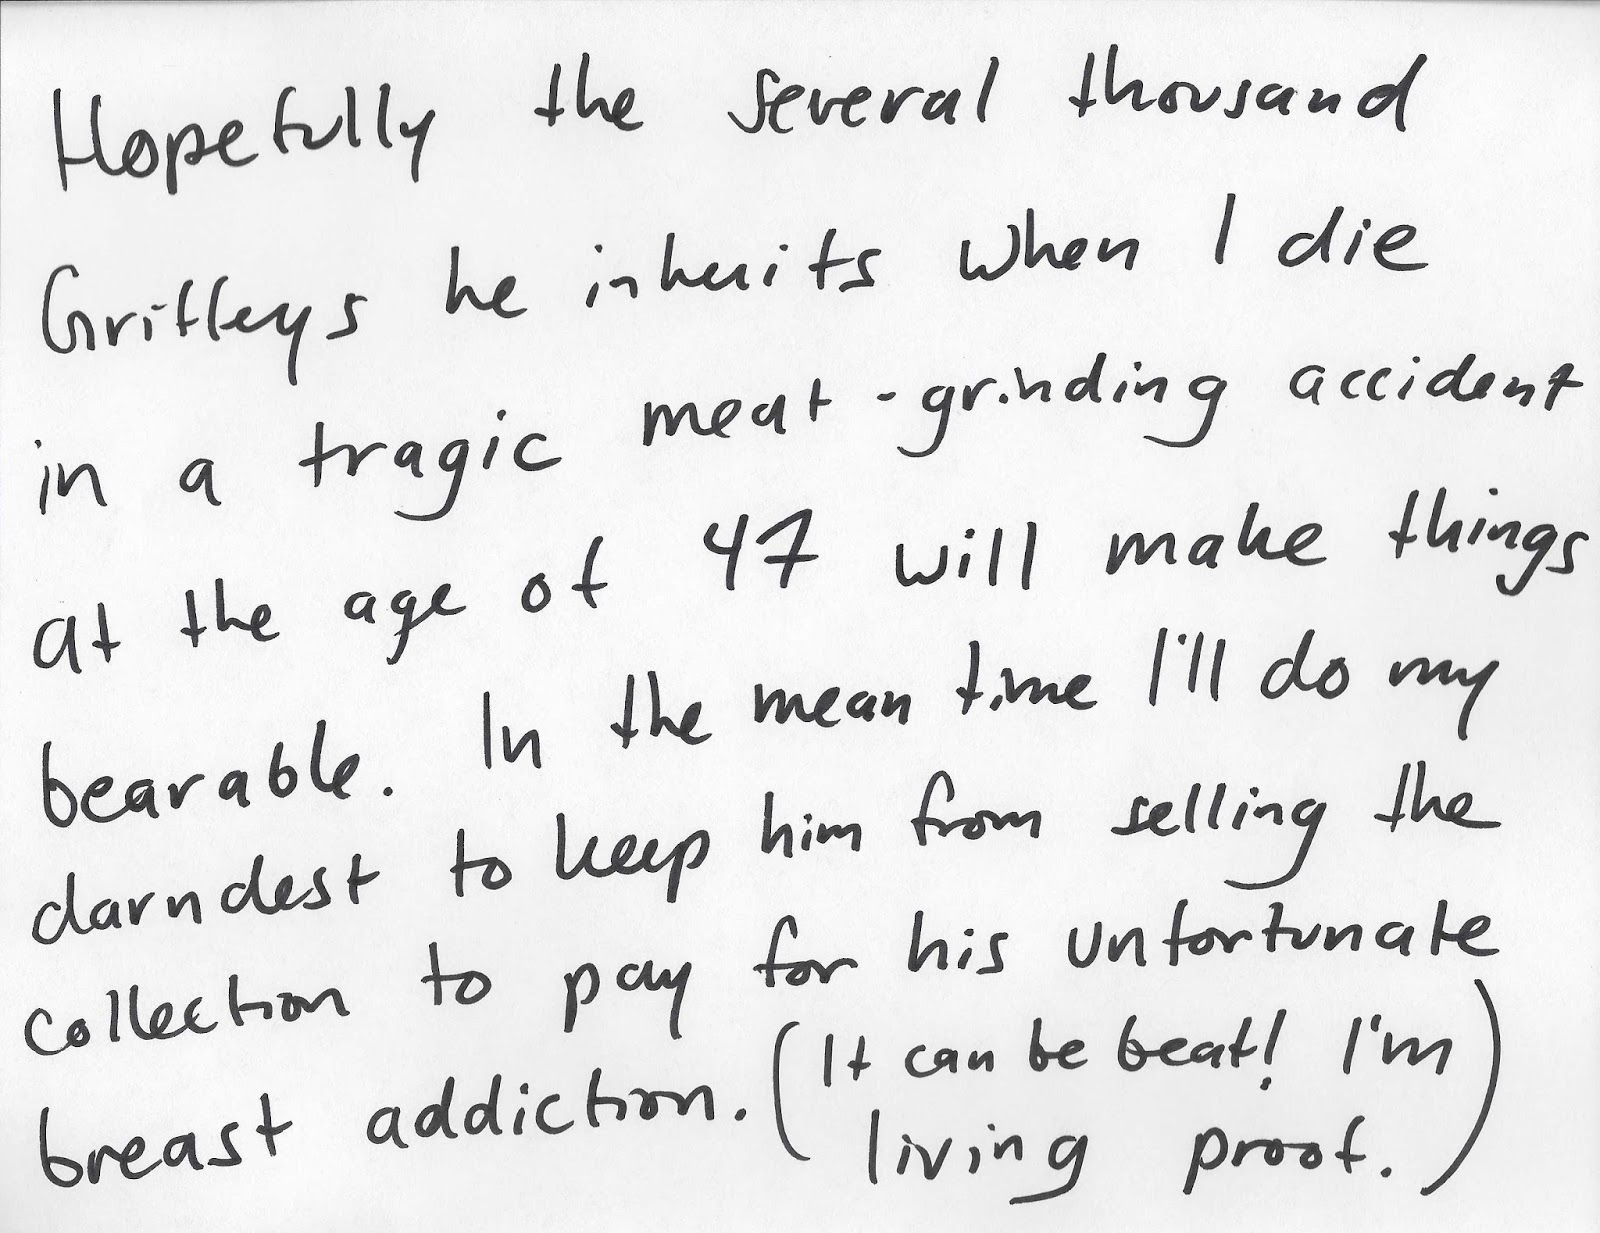 Hopefully the several thousand
Griffeys he inherits when I die
in a tragic meat-grinding accident
at the age of 47 will make things
bearable. In the mean time I'll do my
darndest to keep him from selling the
collection to pay for his unfortunate
breast addiction. (It can be beat! I'm
living proof.)